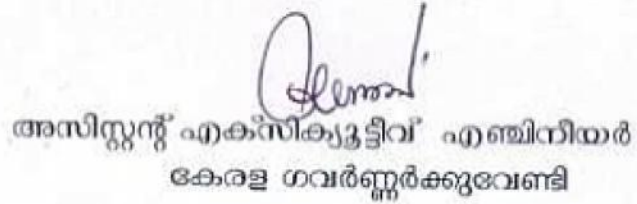 അസിസ്റ്റന്റ് എക്സിക്യൂട്ടീവ് എഞ്ചിനീയർ
കേരള ഗവർണ്ണർക്കുവേണ്ടി